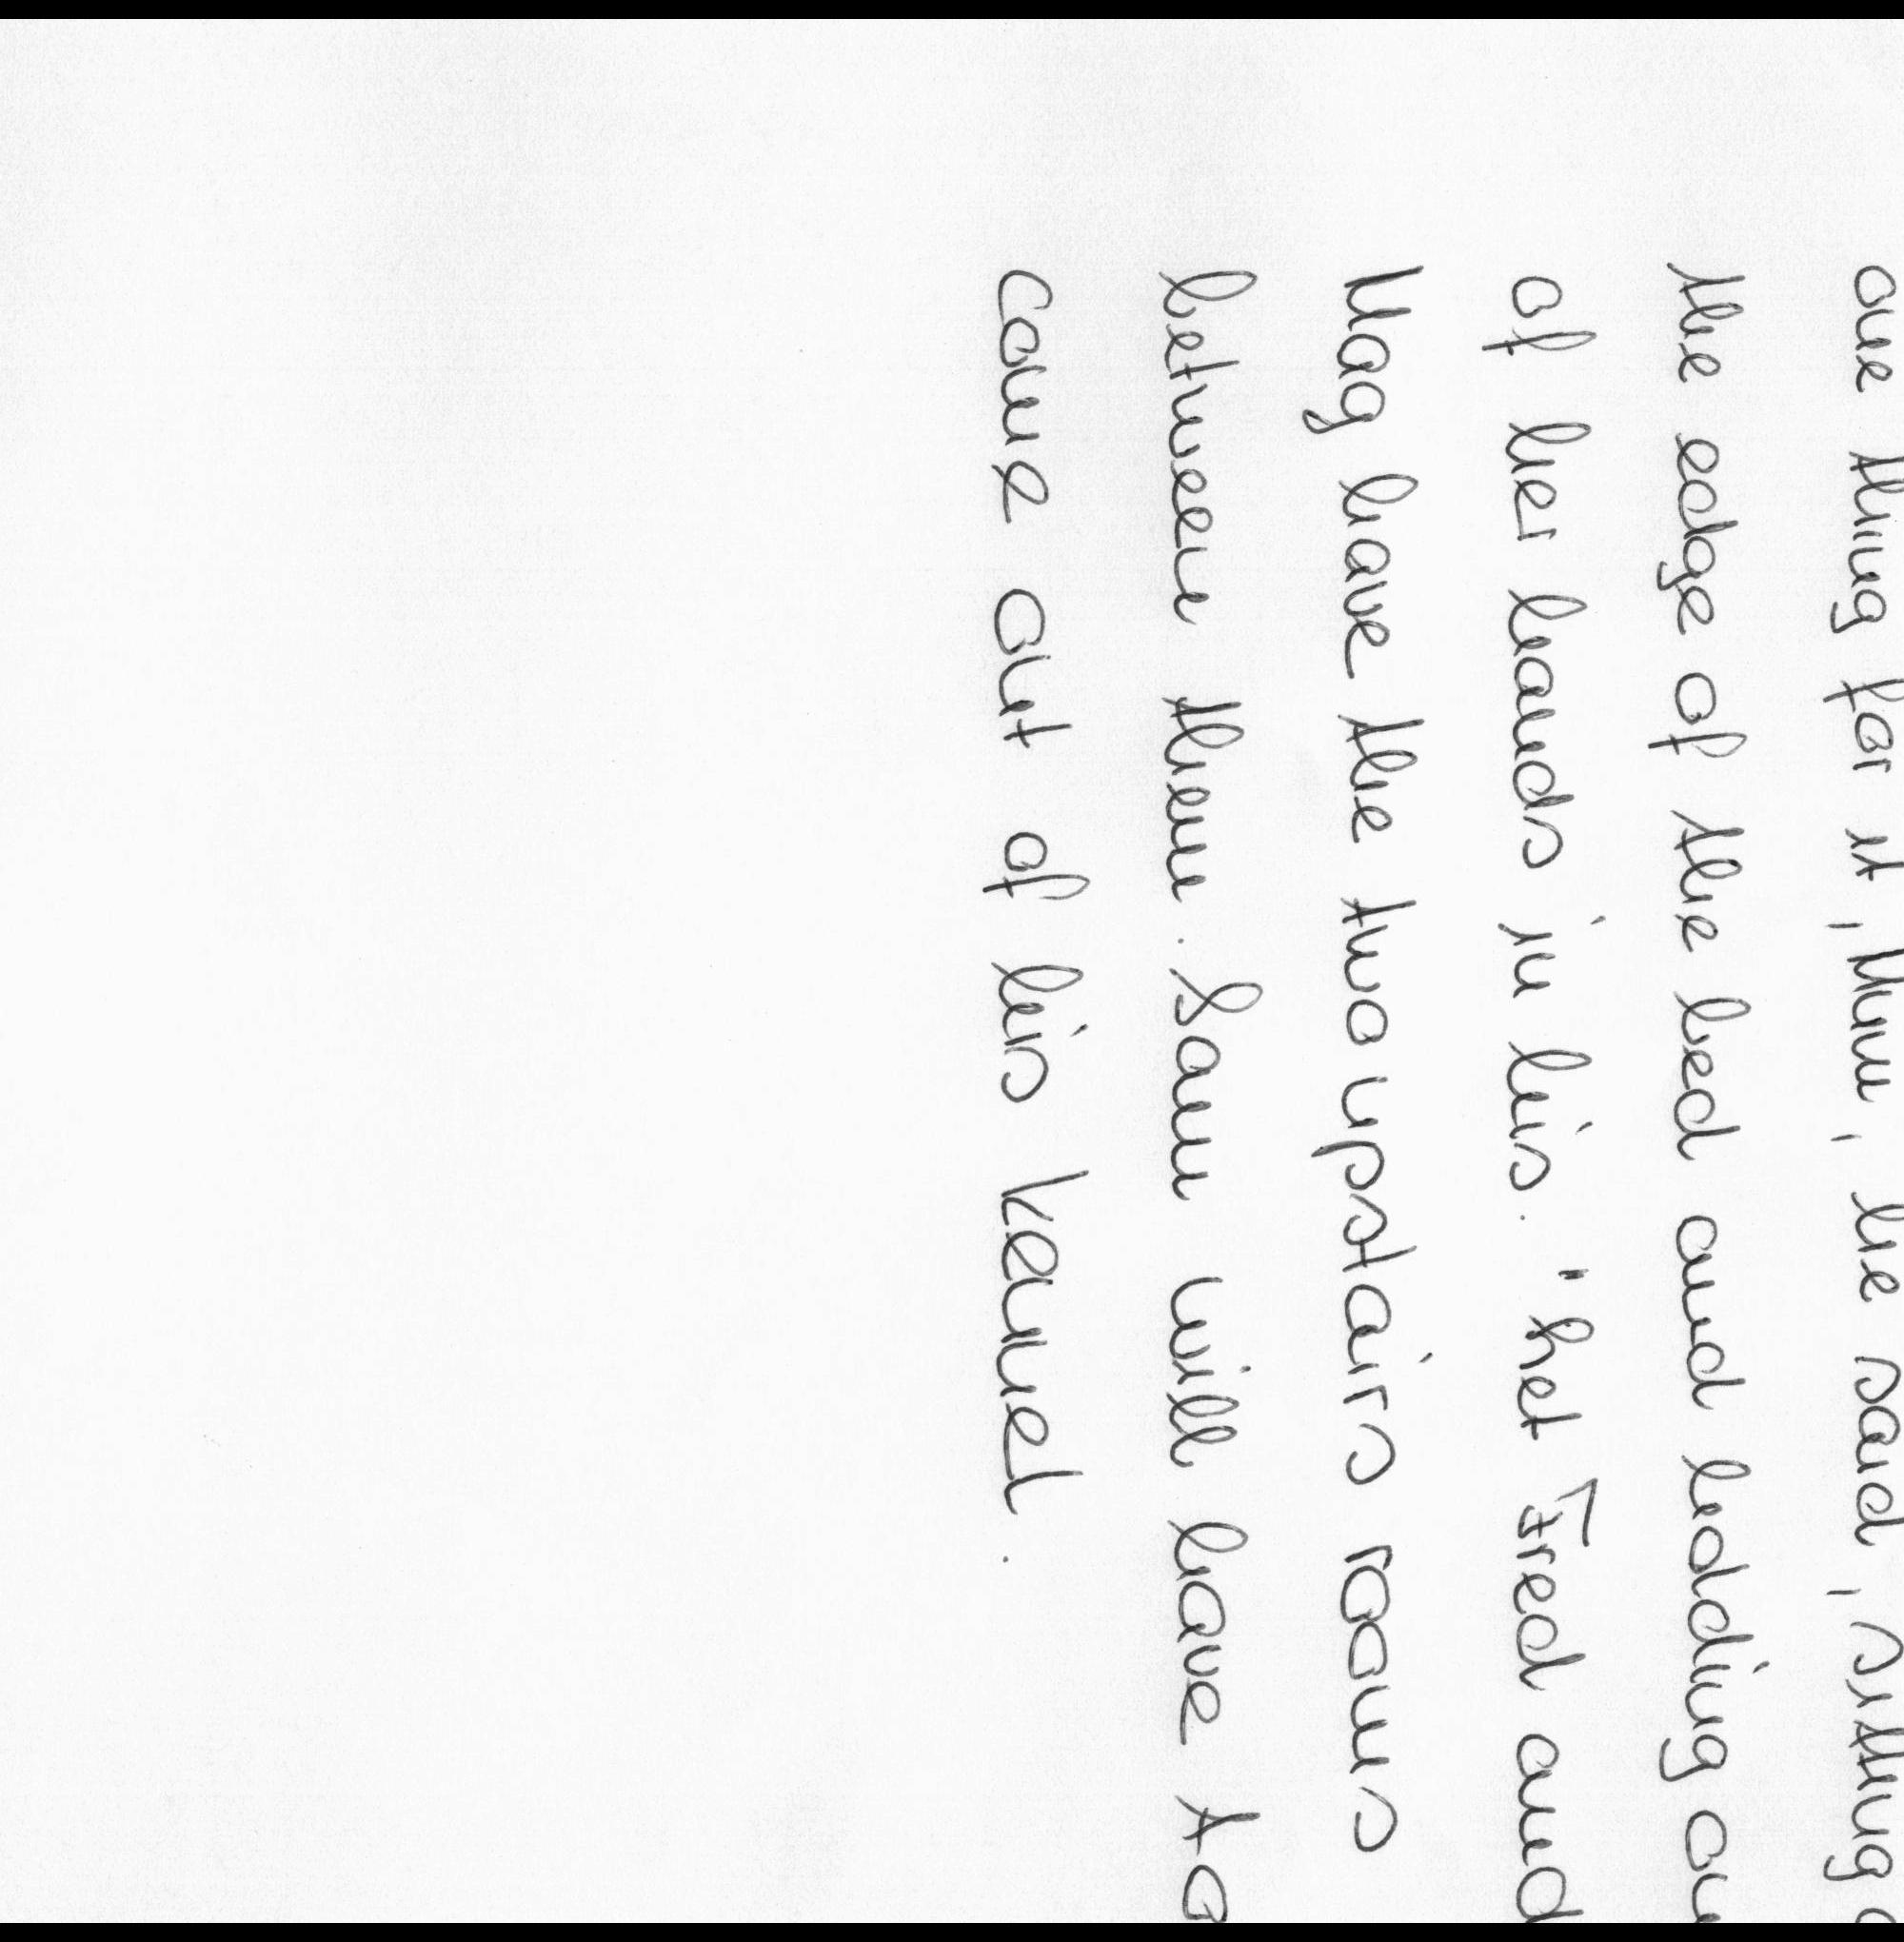 one thing for it, Mum, he said, sitting
the edge of the bed and ledding
of her hands in his. "Let Fred and
Mag have the two upstairs rooms
between them. Sam will have to
come out of his kennel.